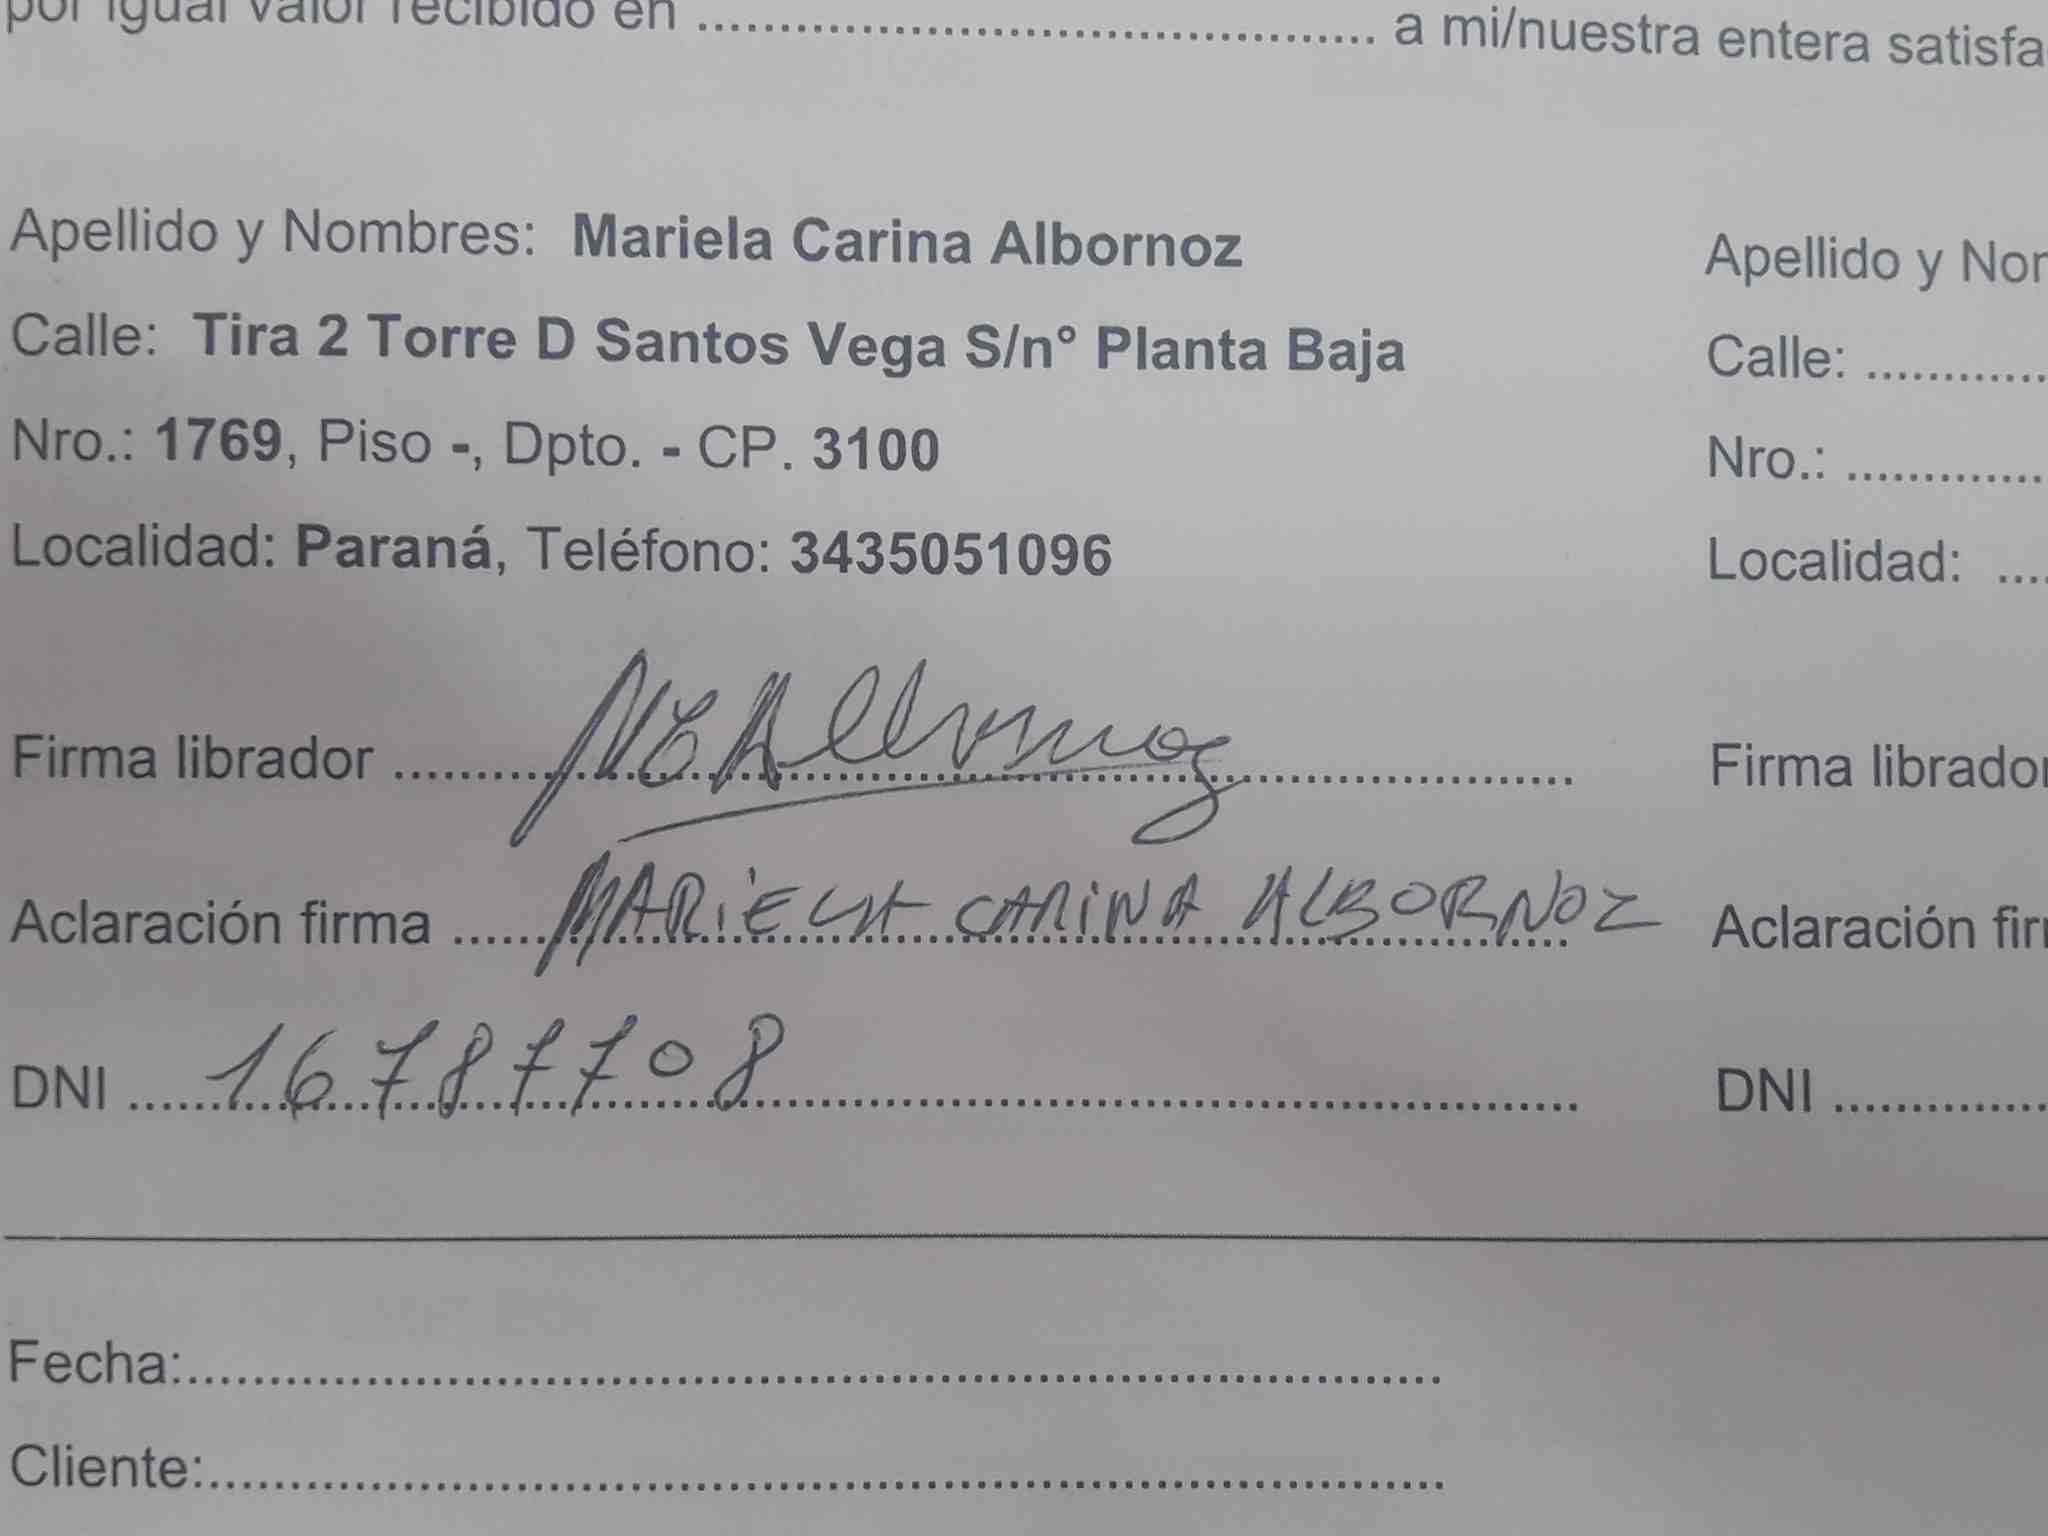 por igual valor recibido en ........................................ a mi/nuestra entera satisfa
Apellido y Nombres: Mariela Carina Albornoz
Calle: Tira 2 Torre D Santos Vega S/n° Planta Baja
Nro.: 1769, Piso -, Dpto. - CP. 3100
Localidad: Paraná, Teléfono: 3435051096
Firma librador ........ MCAlbornoz ........
Aclaración firma ...... MARiELA CARiNA ALBORNOZ
DNI ...... 16787708 ......
Apellido y Nom
Calle: ............
Nro.: ............
Localidad: ....
Firma librador
Aclaración firm
DNI ..............
Fecha:..............................................................................
Cliente:.............................................................................